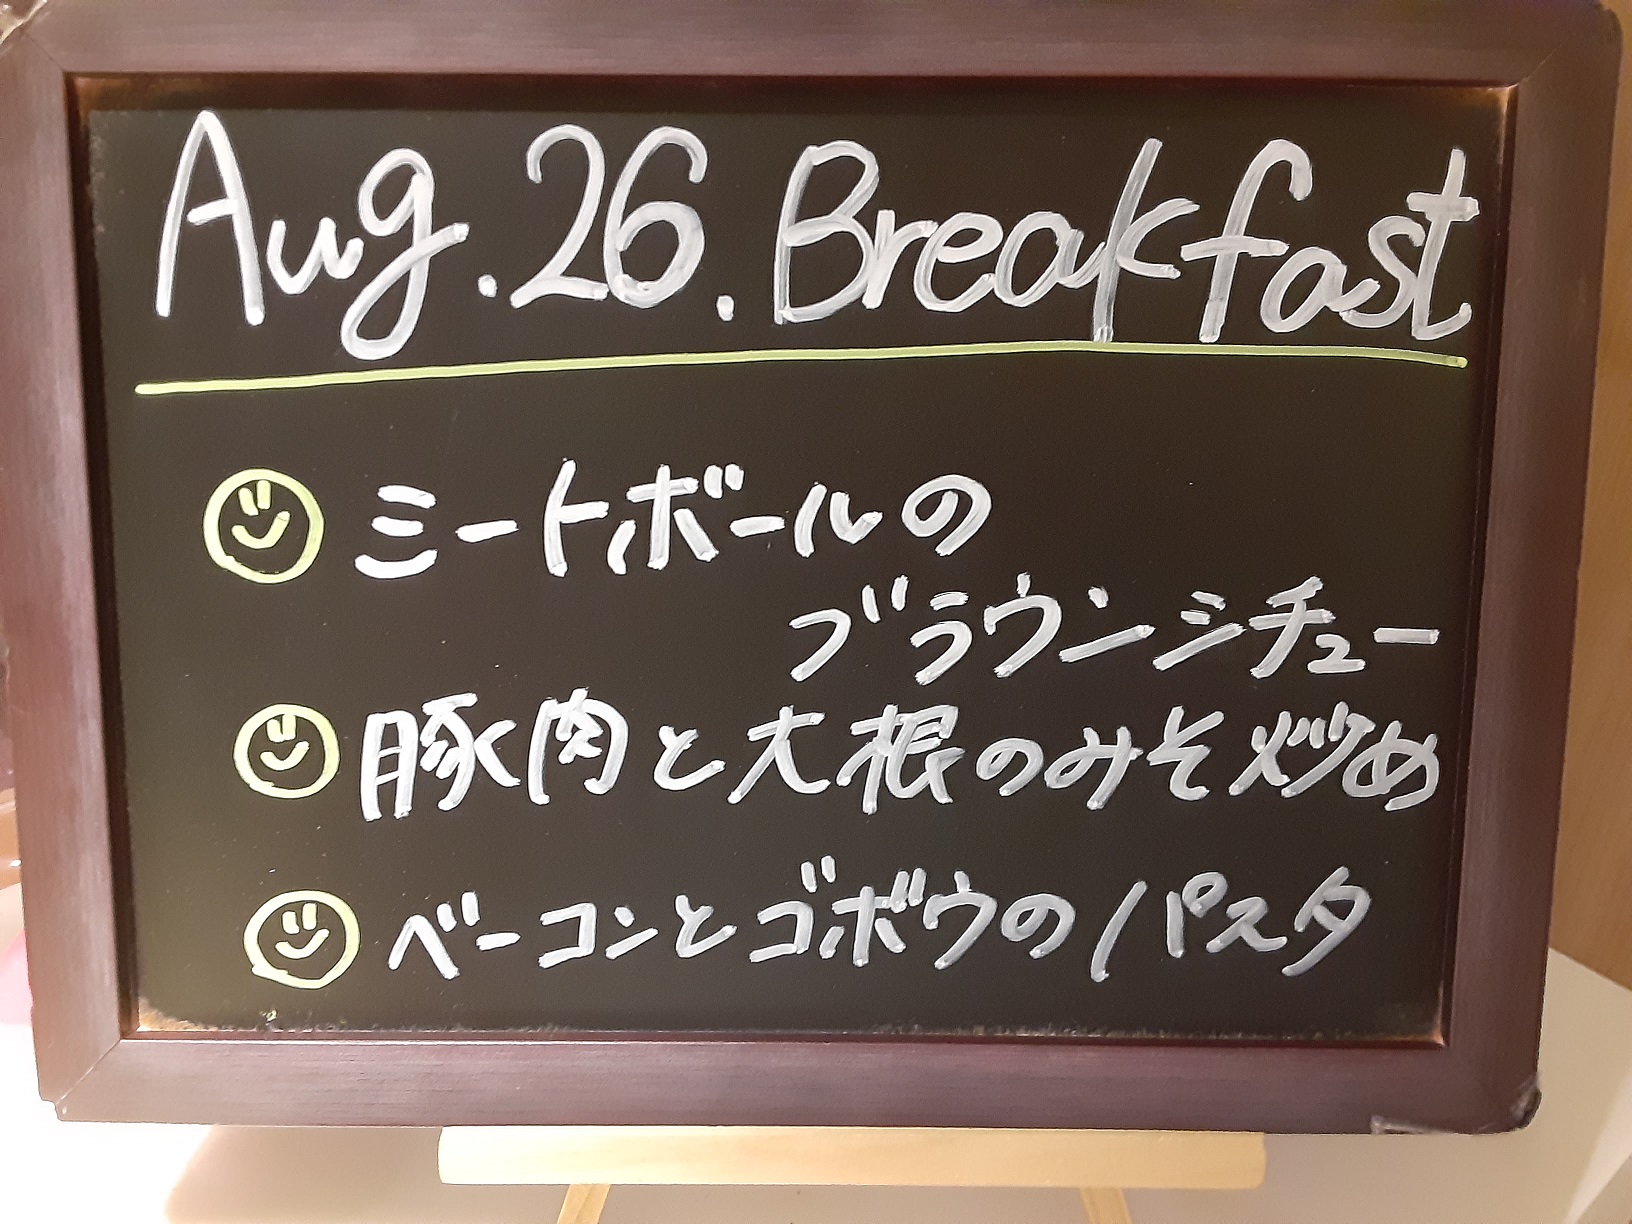 Aug.26.Breakfast
ミートボールの
ブラウンシチュー
豚肉と大根のみそ炒め
ベーコンとゴボウのパスタ